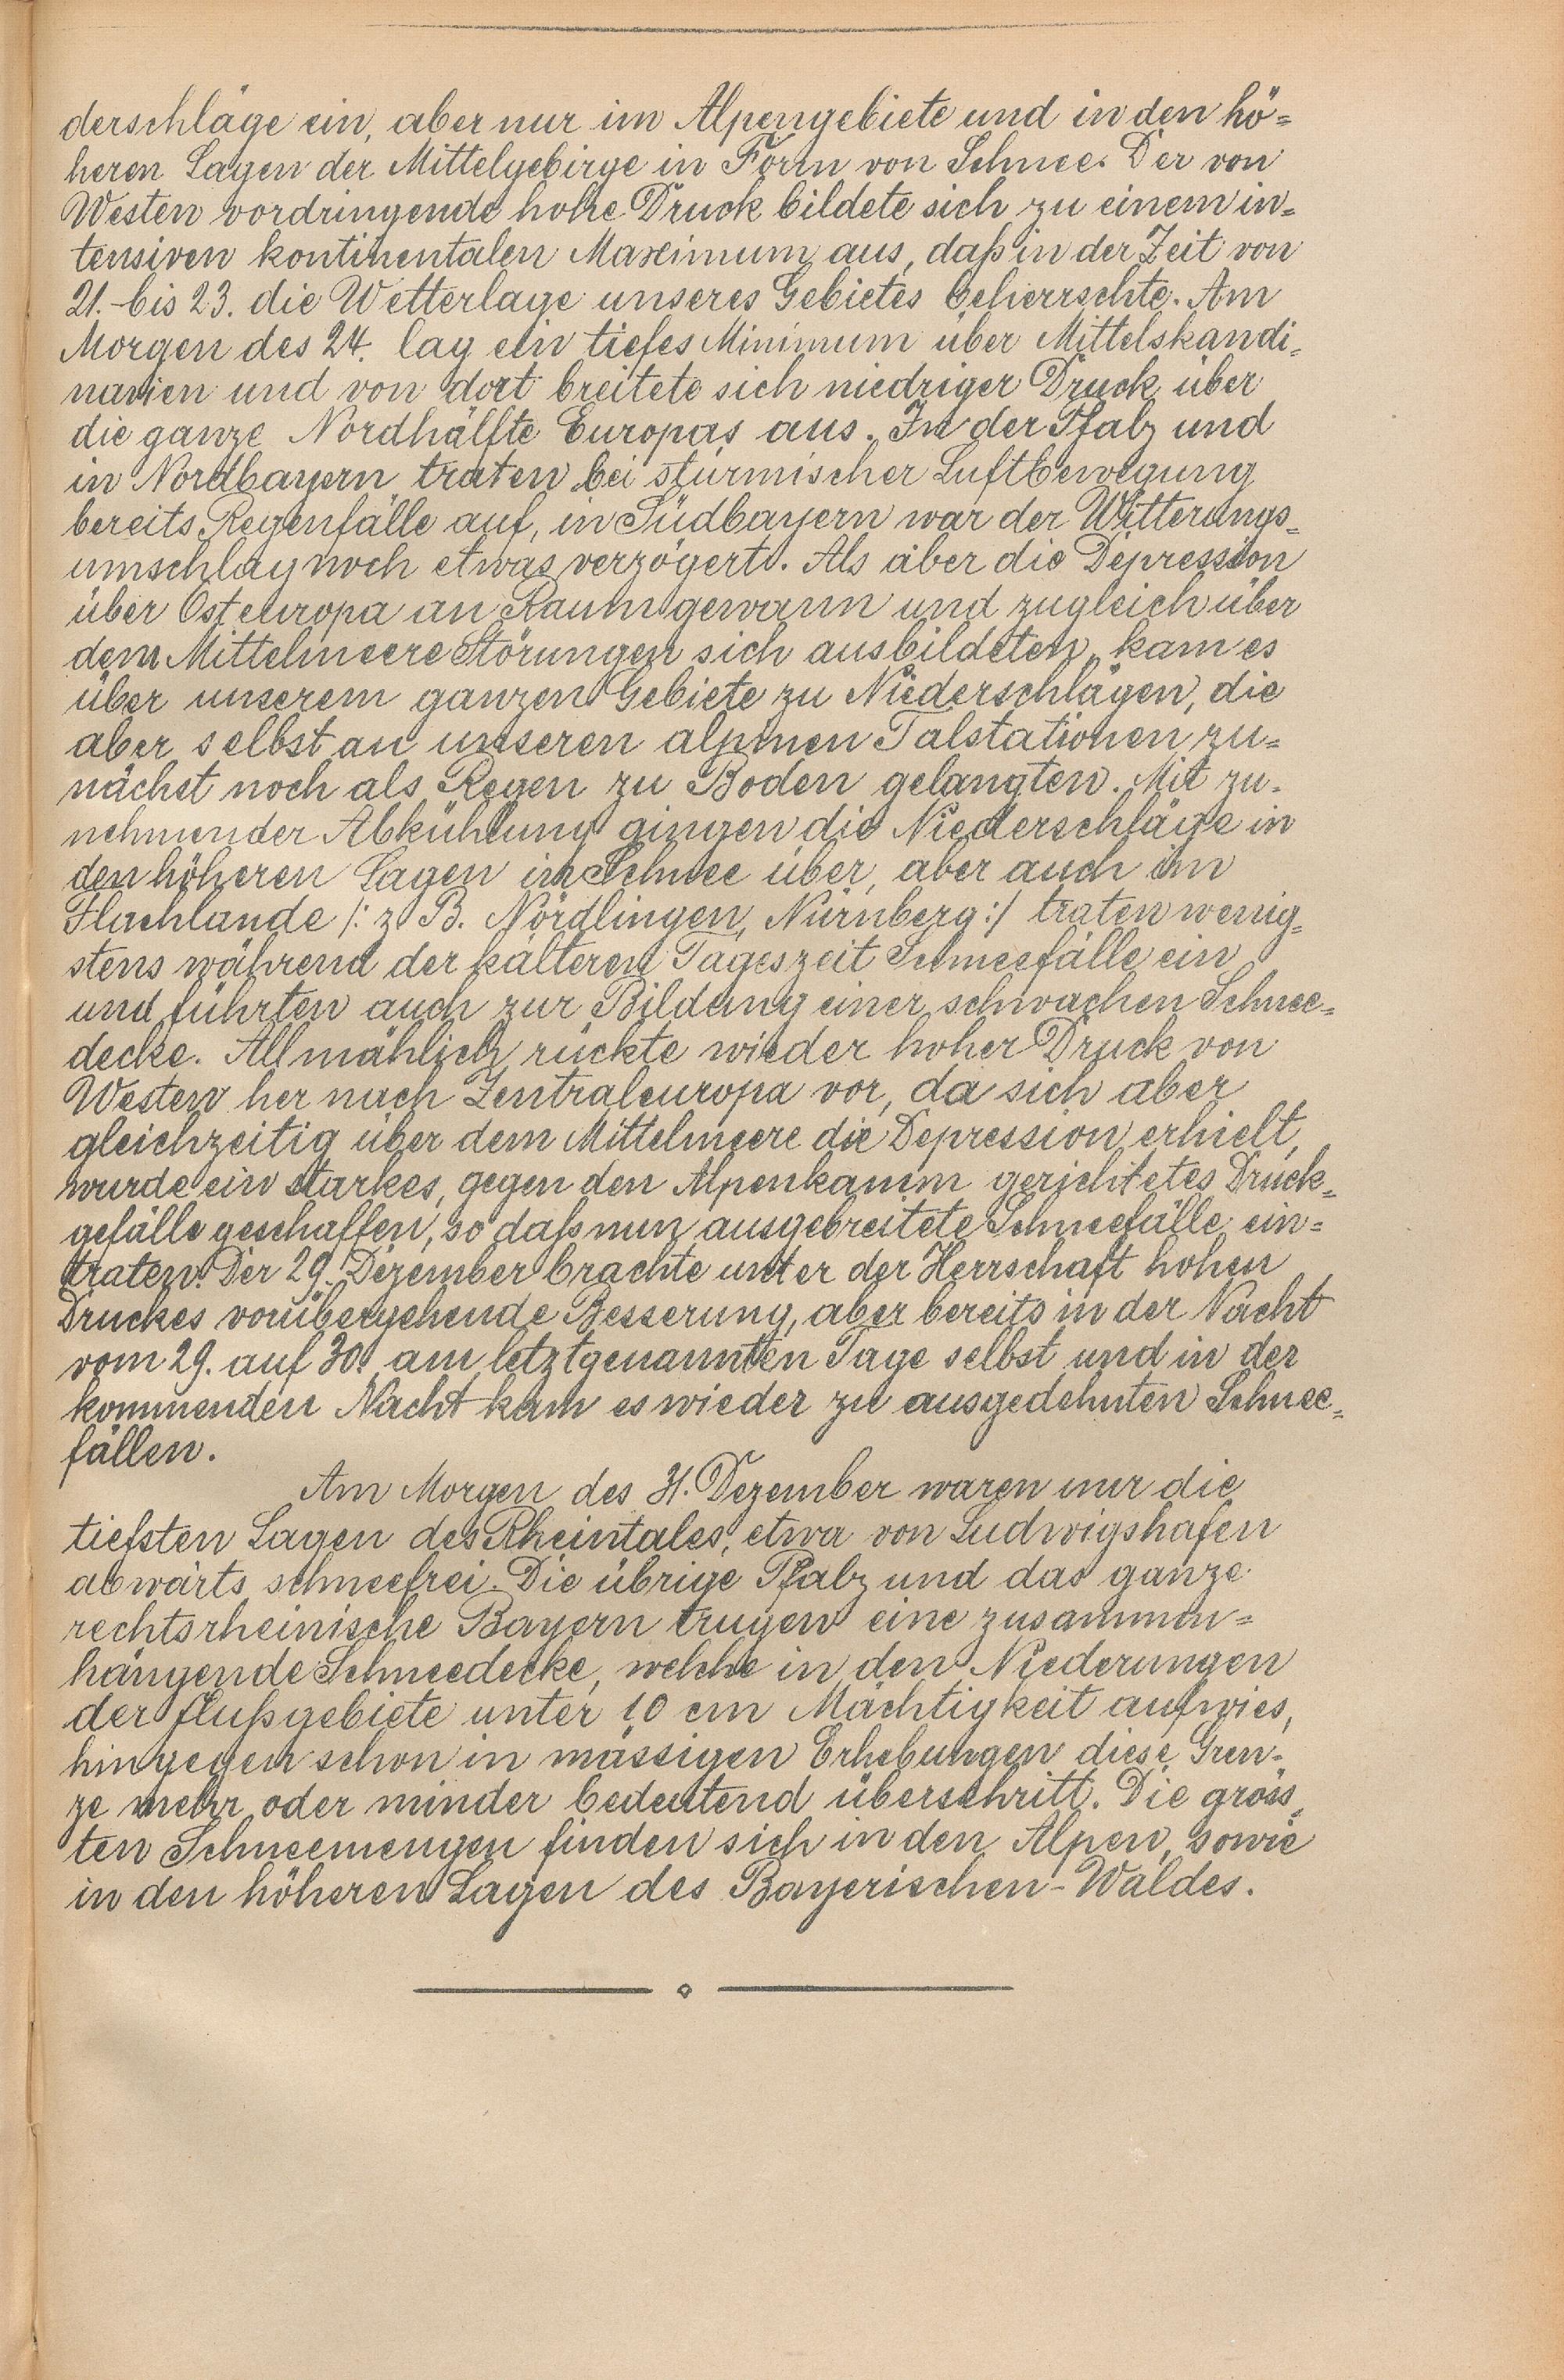 derschläge ein, aber nur im Alpengebiete und in den hö=
heren Lagen der Mittelgebirge in Form von Schnee. Der von
Westen vordringende hohe Druck bildete sich zu einem in=
tensiven kontinentalen Maximum aus, daß in der Zeit von
21. bis 23. die Wetterlage unseres Gebietes beherrschte. Am
Morgen des 24. lag ein tiefes Minimum über Mittelskandi=
navien und von dort breitete sich niedriger Druck über
die ganze Nordhälfte Europas aus. In der Pfalz und
in Nordbayern traten bei stürmischer Luftbewegung
bereits Regenfälle auf, in Südbayern war der Witterungs=
umschlag noch etwas verzögert. Als aber die Depression
über Osteuropa an Raum gewann und zugleich über
dem Mittelmeere Störungen sich ausbildeten, kam es
über unserem ganzen Gebiete zu Niederschlägen, die
aber selbst an unseren alpinen Talstationen zu=
nächst noch als Regen zu Boden gelangten. Mit zu=
nehmender Abkühlung gingen die Niederschläge in
den höheren Lagen in Schnee über, aber auch im
Flachlande /: z. B. Nördlingen, Nürnberg :/ traten wenig=
stens während der kälteren Tageszeit Schneefälle ein
und führten auch zur Bildung einer schwachen Schnee=
decke. Allmählich rückte wieder hoher Druck von
Westen her nach Zentraleuropa vor, da sich aber
gleichzeitig über dem Mittelmeere die Depression erhielt,
wurde ein starkes, gegen den Alpenkamm gerichtetes Druck=
gefälle geschaffen, so daß nun ausgebreitete Schneefälle ein=
traten. Der 29. Dezember brachte unter der Herrschaft hohen
Druckes vorübergehende Besserung, aber bereits in der Nacht
vom 29. auf 30., am letztgenannten Tage selbst und in der
kommenden Nacht kam es wieder zu ausgedehnten Schnee=
fällen.
Am Morgen des 31. Dezember waren nur die
tiefsten Lagen des Rheintales, etwa von Ludwigshafen
abwärts schneefrei. Die übrige Pfalz und das ganze
rechtsrheinische Bayern trugen eine zusammen=
hängende Schneedecke, welche in den Niederungen
der Flußgebiete unter 10 cm Mächtigkeit aufwies,
hingegen schon in mässigen Erhebungen diese Gren=
ze mehr oder minder bedeutend überschritt. Die gröss=
ten Schneemengen finden sich in den Alpen, sowie
in den höheren Lagen des Bayerischen-Waldes.